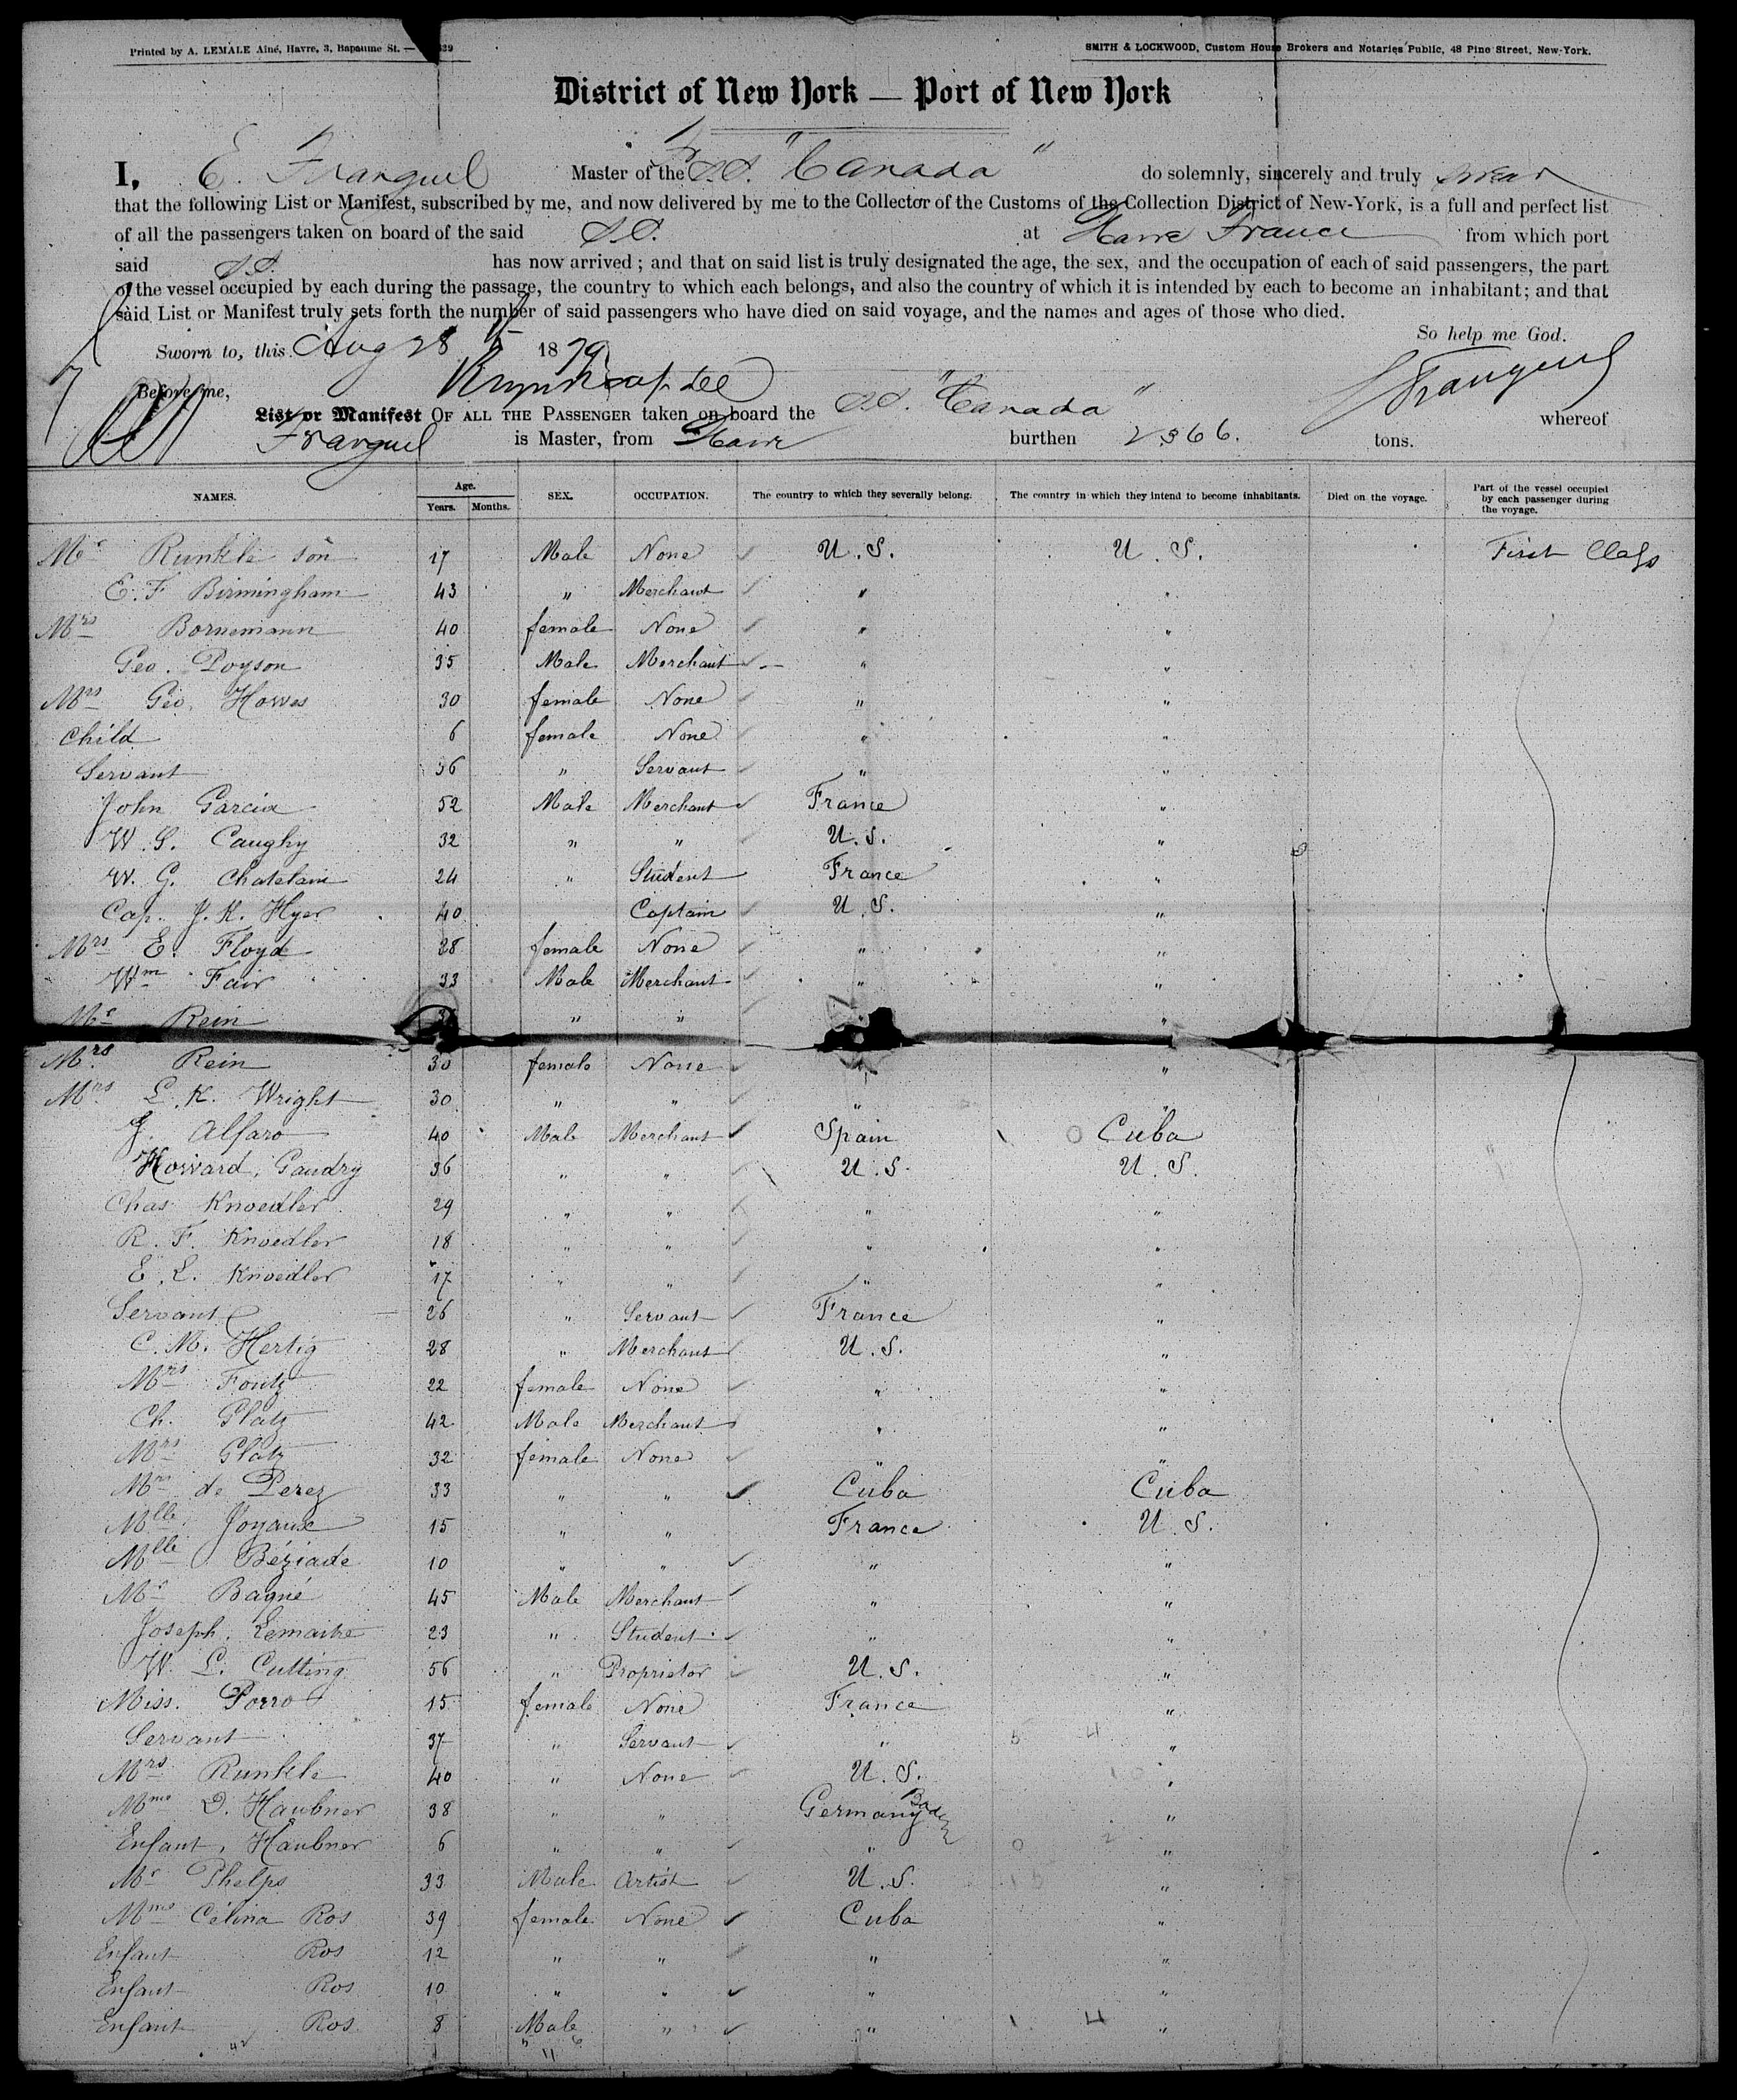 Printed by A. LEMALE Aîné, Havre, 3, Bapaume St. —
SMITH & LOCKWOOD, Custom House Brokers and Notaries Public, 48 Pine Street, New-York.
District of New York — Port of New York
I, E. Frangeul Master of the Fr. S.S. "Canada" do solemnly, sincerely and truly swear
that the following List or Manifest, subscribed by me, and now delivered by me to the Collector of the Customs of the Collection District of New-York, is a full and perfect list
of all the passengers taken on board of the said S.S. at Havre France from which port
said S.S. has now arrived; and that on said list is truly designated the age, the sex, and the occupation of each of said passengers, the part
of the vessel occupied by each during the passage, the country to which each belongs, and also the country of which it is intended by each to become an inhabitant; and that
said List or Manifest truly sets forth the number of said passengers who have died on said voyage, and the names and ages of those who died.
So help me God.
Sworn to, this Aug 28 1879
Before me,
Frangeul
List or Manifest OF ALL THE PASSENGER taken on board the S.S. "Canada" whereof
Frangeul is Master, from Havre burthen 2366. tons.
NAMES. Age. Years. Months. SEX. OCCUPATION. The country to which they severally belong. The country in which they intend to become inhabitants. Died on the voyage. Part of the vessel occupied by each passenger during the voyage.
Mr Runkle son 17 Male None U.S. U.S. First Class
E. F Birmingham 43 " Merchant " "
Mrs Bornemann 40 female None " "
Geo. Poyson 35 Male Merchant " "
Mrs Geo. Howes 30 female None " "
Child 6 female None " "
Servant 36 " Servant " "
John Garcia 52 Male Merchant France "
W. S. Caughy 32 " " U.S. "
W. G. Chatelain 24 " Student France "
Cap. J. K. Hyer 40 Captain U.S. "
Mrs E. Floyd 28 female None " "
Wm Fair 33 Male Merchant " "
Mr Rein " " " "
Mrs Rein 30 female None " "
Mrs L. K. Wright 30 " " " "
J. Alfaro 40 Male Merchant Spain Cuba
Howard Gaudry 36 " " U.S. U.S.
Chas Knoedler 29 " " " "
R. F. Knoedler 18 " " " "
E. L. Knoedler 17 " " " "
Servant 26 " Servant France "
C. M. Hertig 28 " Merchant U.S. "
Mrs Foutz 22 female None " "
Ch. Glatz 42 Male Merchant " "
Mrs Glatz 32 female None " "
Mme de Perez 33 " " Cuba Cuba
Mlle Joyaux 15 " " France U.S.
Mlle Béziade 10 " " " "
Mr Bagné 45 Male Merchant " "
Joseph Lemaitre 23 " Student " "
W. L. Cutting 56 " Proprietor U.S. "
Miss. Porro 15 female None France "
Servant 37 " Servant " "
Mrs Runkle 40 " None U.S. "
Mme D. Haubner 38 " " Germany Baden "
Enfant, Haubner 6 " " " "
Mr Phelps 33 Male Artist U.S. "
Mme Célina Ros 39 female None Cuba "
Enfant Ros 12 " " " "
Enfant Ros 10 " " " "
Enfant Ros 8 Male " " "